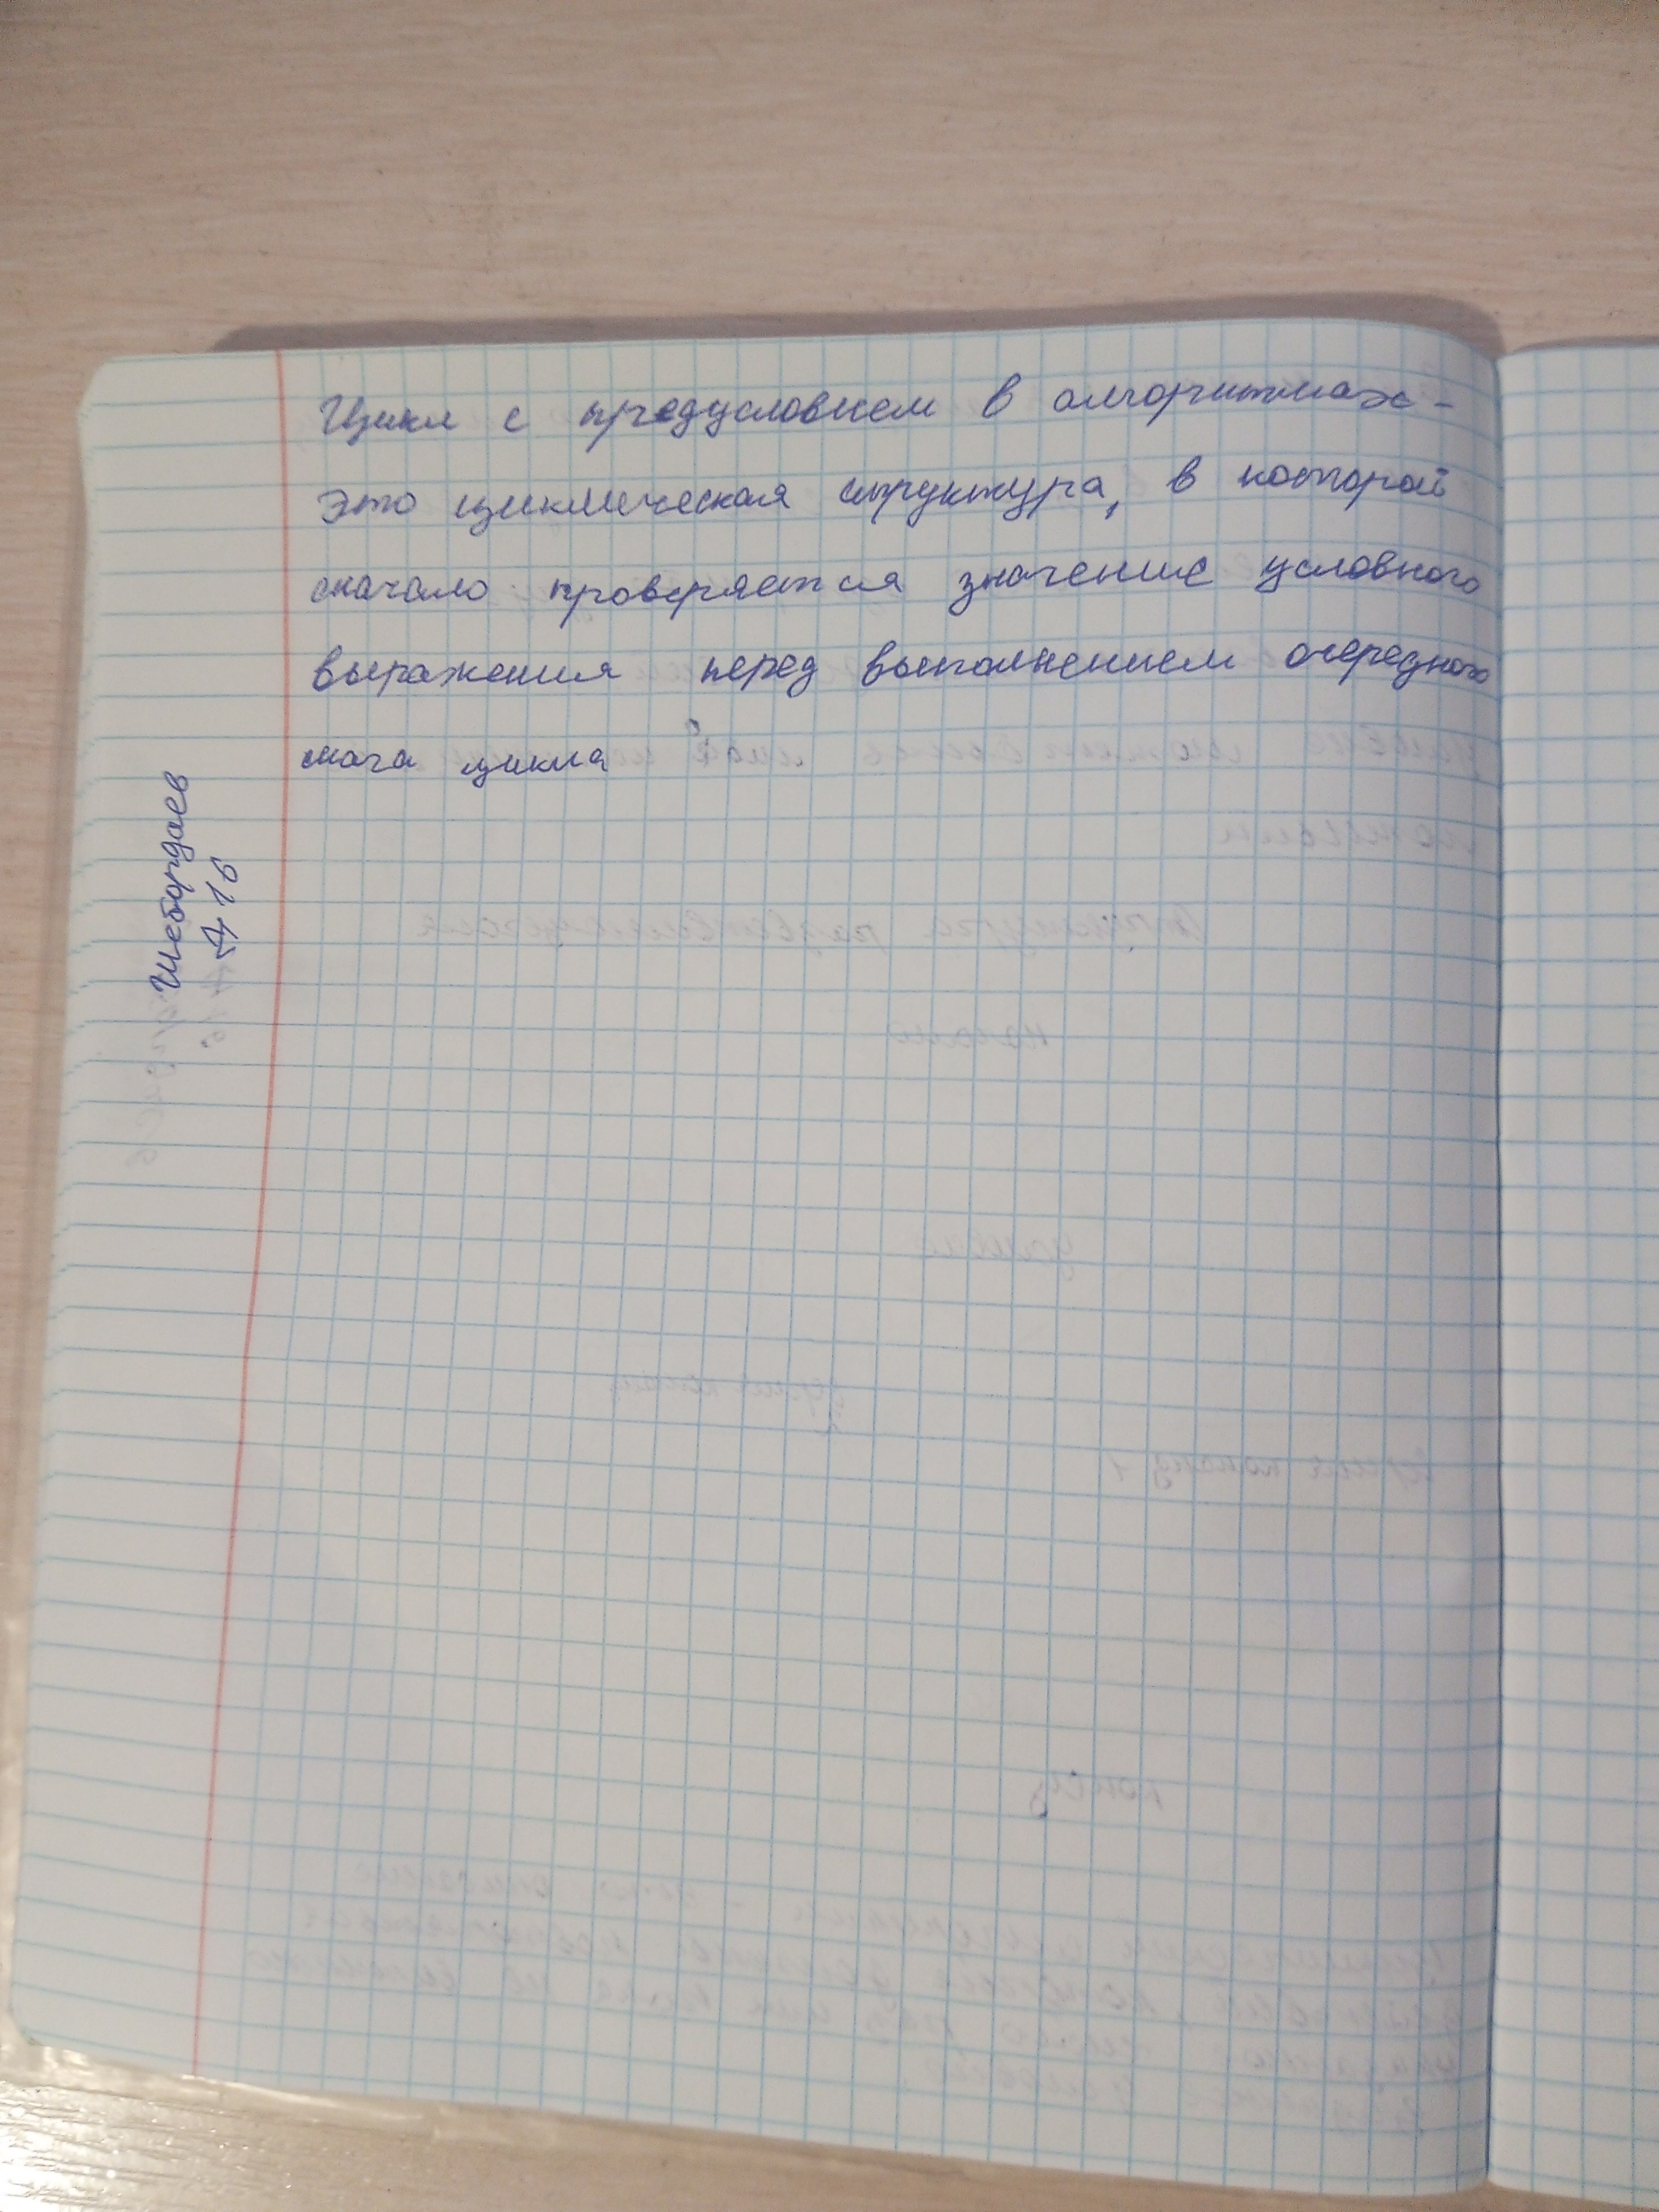 Цикл с предусловием в алгоритмах -
это циклическая структура, в которой
сначало проверяется значение условного
выражения перед выполнением очередного
цикла
Шебордаев